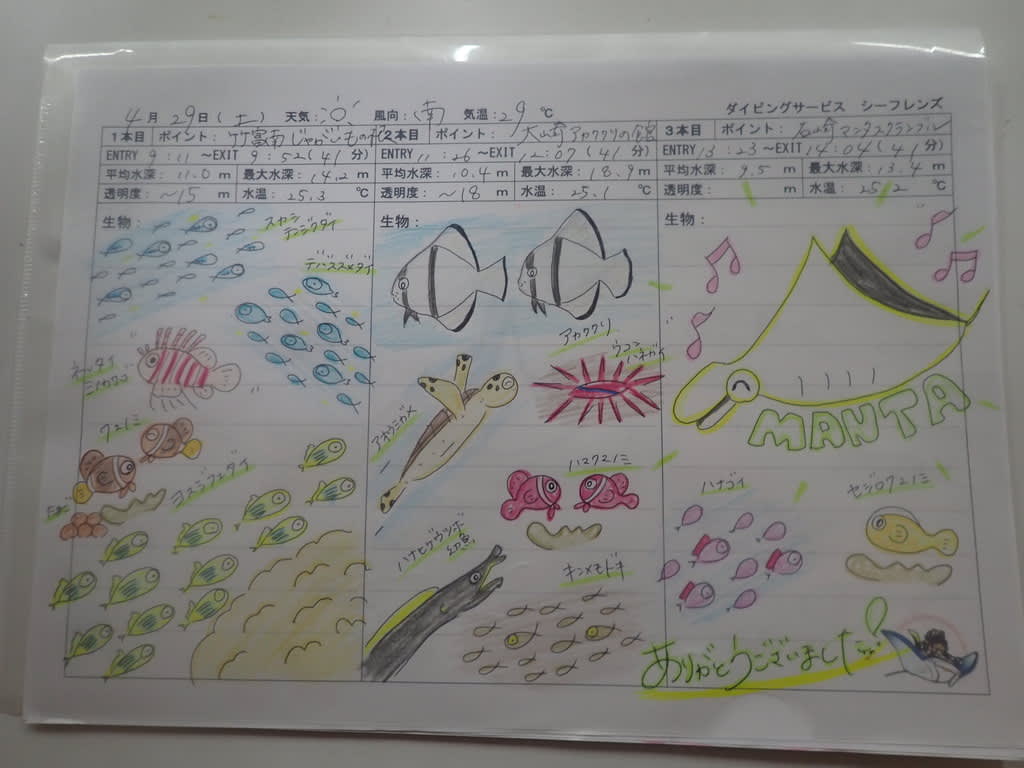 4月29日(土) 天気: 風向:南 気温:29℃ ダイビングサービス シーフレンズ
1本目 ポイント: 竹富南じゃがこもの根
ENTRY 9:11 ～EXIT 9:52(41分)
平均水深: 11.0 m 最大水深: 14.2 m
透明度: ～15 m 水温: 25.3 ℃
生物:
スカシテンジクダイ
デバスズメダイ
ネッタイミノカサゴ
クマノミ
たまご
ヨスジフエダイ
2本目 ポイント: 大崎アカククリの館
ENTRY 11:26 ～EXIT 12:07(41分)
平均水深: 10.4 m 最大水深: 18.9 m
透明度: ～18 m 水温: 25.1 ℃
生物:
アカククリ
ウコンハネガイ
アオウミガメ
ハマクマノミ
ハナヒゲウツボ
幼魚
キンメモドキ
3本目 ポイント: 石崎マンタスクランブル
ENTRY 13:23 ～EXIT 14:04(41分)
平均水深: 9.5 m 最大水深: 13.4 m
透明度: m 水温: 25.2 ℃
生物:
MANTA
ハナゴイ
セジロクマノミ
ありがとうございました